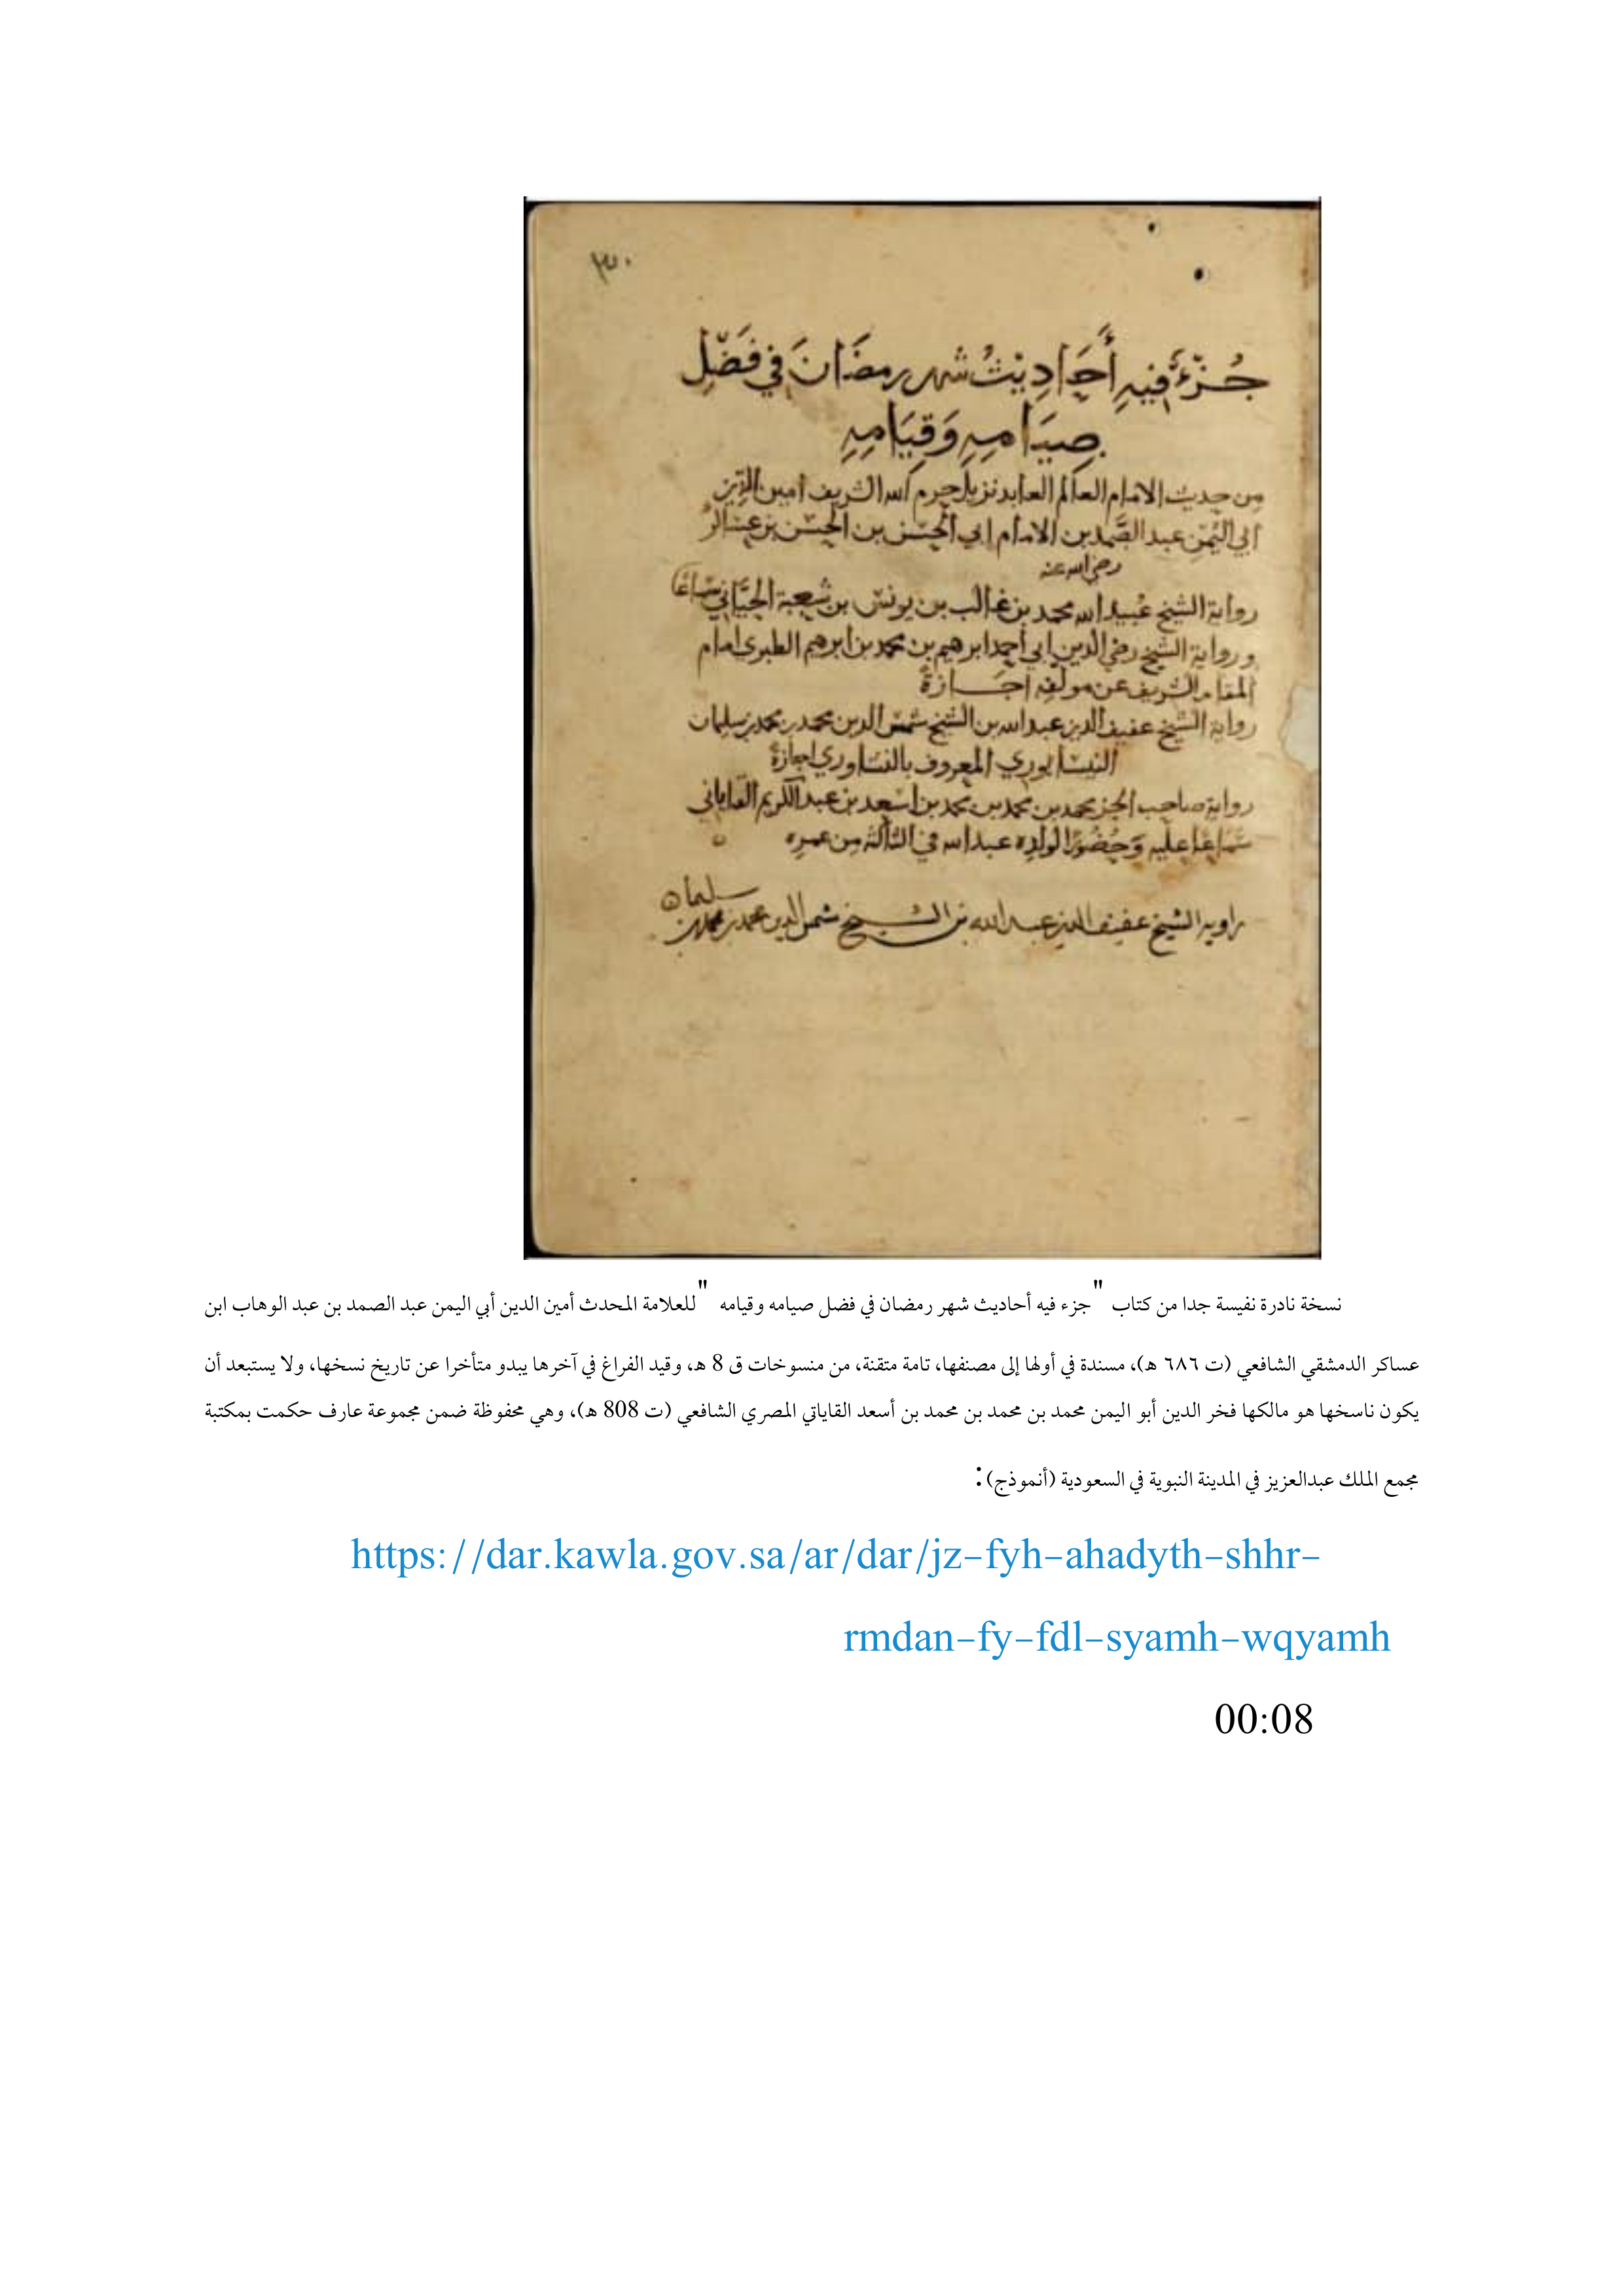 ٣٠
جُزْءٌ فِيهِ أَحَادِيْثُ شهر رمضَانَ فِي فَضْلِ
صِيَامِهِ وَقِيَامِهِ
من حديث الامام العالم العابد نزيل حرم الله الشريف امين الدين
ابي اليُمْن عبد الصَّمد بن الامام ابي الحسن بن الحسن بن عساكر
رضي الله عنه
رواية الشيخ عبيد الله محمد بن غالب بن يونس بن شعبة الجيَّاني سماعًا
ورواية الشيخ رضي الدين ابي أحمد ابرهيم بن محمد بن ابرهيم الطبري امام
المقام الشريف عن مولفه اجازةً
رواية الشيخ عفيف الدين عبد الله بن الشيخ شمس الدين محمد بن محمد بن سليمان
النيسابوري المعروف بالنشاوري اجازةً
رواية صاحب الجزء محمد بن محمد بن محمد بن اسعد بن عبد الكريم القاياتي
سَمَاعًا عليه وَحُضُورًا لولده عبد الله في الثالثة من عمره
راويه الشيخ عفيف الدين عبد الله بن الشيخ شمس الدين محمد بن محمد بن سليمان
نسخة نادرة نفيسة جدا من كتاب "جزء فيه أحاديث شهر رمضان في فضل صيامه وقيامه "للعلامة المحدث أمين الدين أبي اليمن عبد الصمد بن عبد الوهاب ابن
عساكر الدمشقي الشافعي (ت ٦٨٦ هـ)، مسندة في أولها إلى مصنفها، تامة متقنة، من منسوخات ق 8 هـ، وقيد الفراغ في آخرها يبدو متأخرا عن تاريخ نسخها، ولا يستبعد أن
يكون ناسخها هو مالكها فخر الدين أبو اليمن محمد بن محمد بن محمد بن أسعد القاياتي المصري الشافعي (ت 808 هـ)، وهي محفوظة ضمن مجموعة عارف حكمت بمكتبة
مجمع الملك عبدالعزيز في المدينة النبوية في السعودية (أنموذج):
https://dar.kawla.gov.sa/ar/dar/jz-fyh-ahadyth-shhr-
rmdan-fy-fdl-syamh-wqyamh
00:08